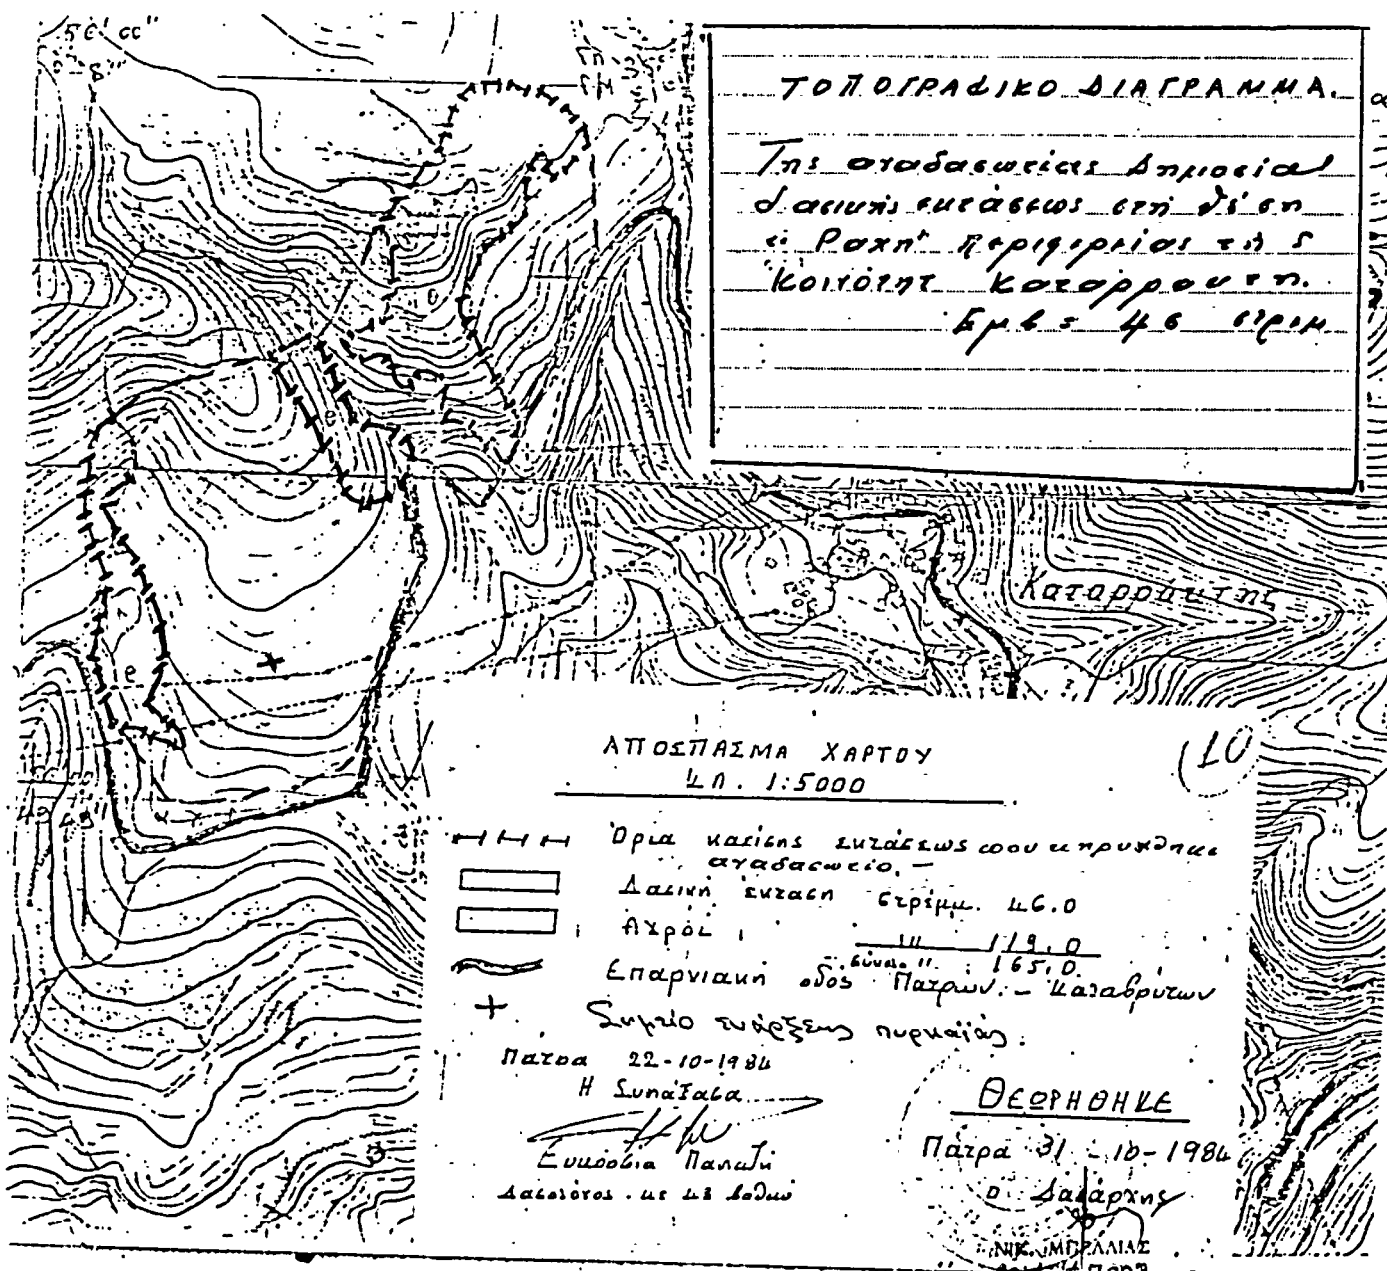 ΤΟΠΟΓΡΑΦΙΚΟ ΔΙΑΓΡΑΜΜΑ.
Της αναδασωτέας Δημοσίας
δασικής εκτάσεως στη θέση
"Ραχη" περιφερείας της
Κοινότητ Καταρραυτη.
Εμβ = 46 στρεμ
Καταρραυτης
ΑΠΟΣΠΑΣΜΑ ΧΑΡΤΟΥ
ΚΛ. 1:5000
(10
Όρια καείσης εκτάσεως που κηρύχθηκε
αναδασωτέο. -
Δασική έκταση στρέμμ. 46.0
Αγροί " 119.0
συνολ. " 165.0
Επαρχιακή οδός Πατρών. - Καλαβρύτων
+ Σημείο ενάρξεως πυρκαϊάς.
Πάτρα 22-10-1984
Η Συντάξασα
Δασολόγος με 4ο βαθμό
ΘΕΩΡΗΘΗΚΕ
Πάτρα 31-10-1984
ο Δασάρχης
ΝΙΚ. ΜΠΡΑΛΙΑΣ